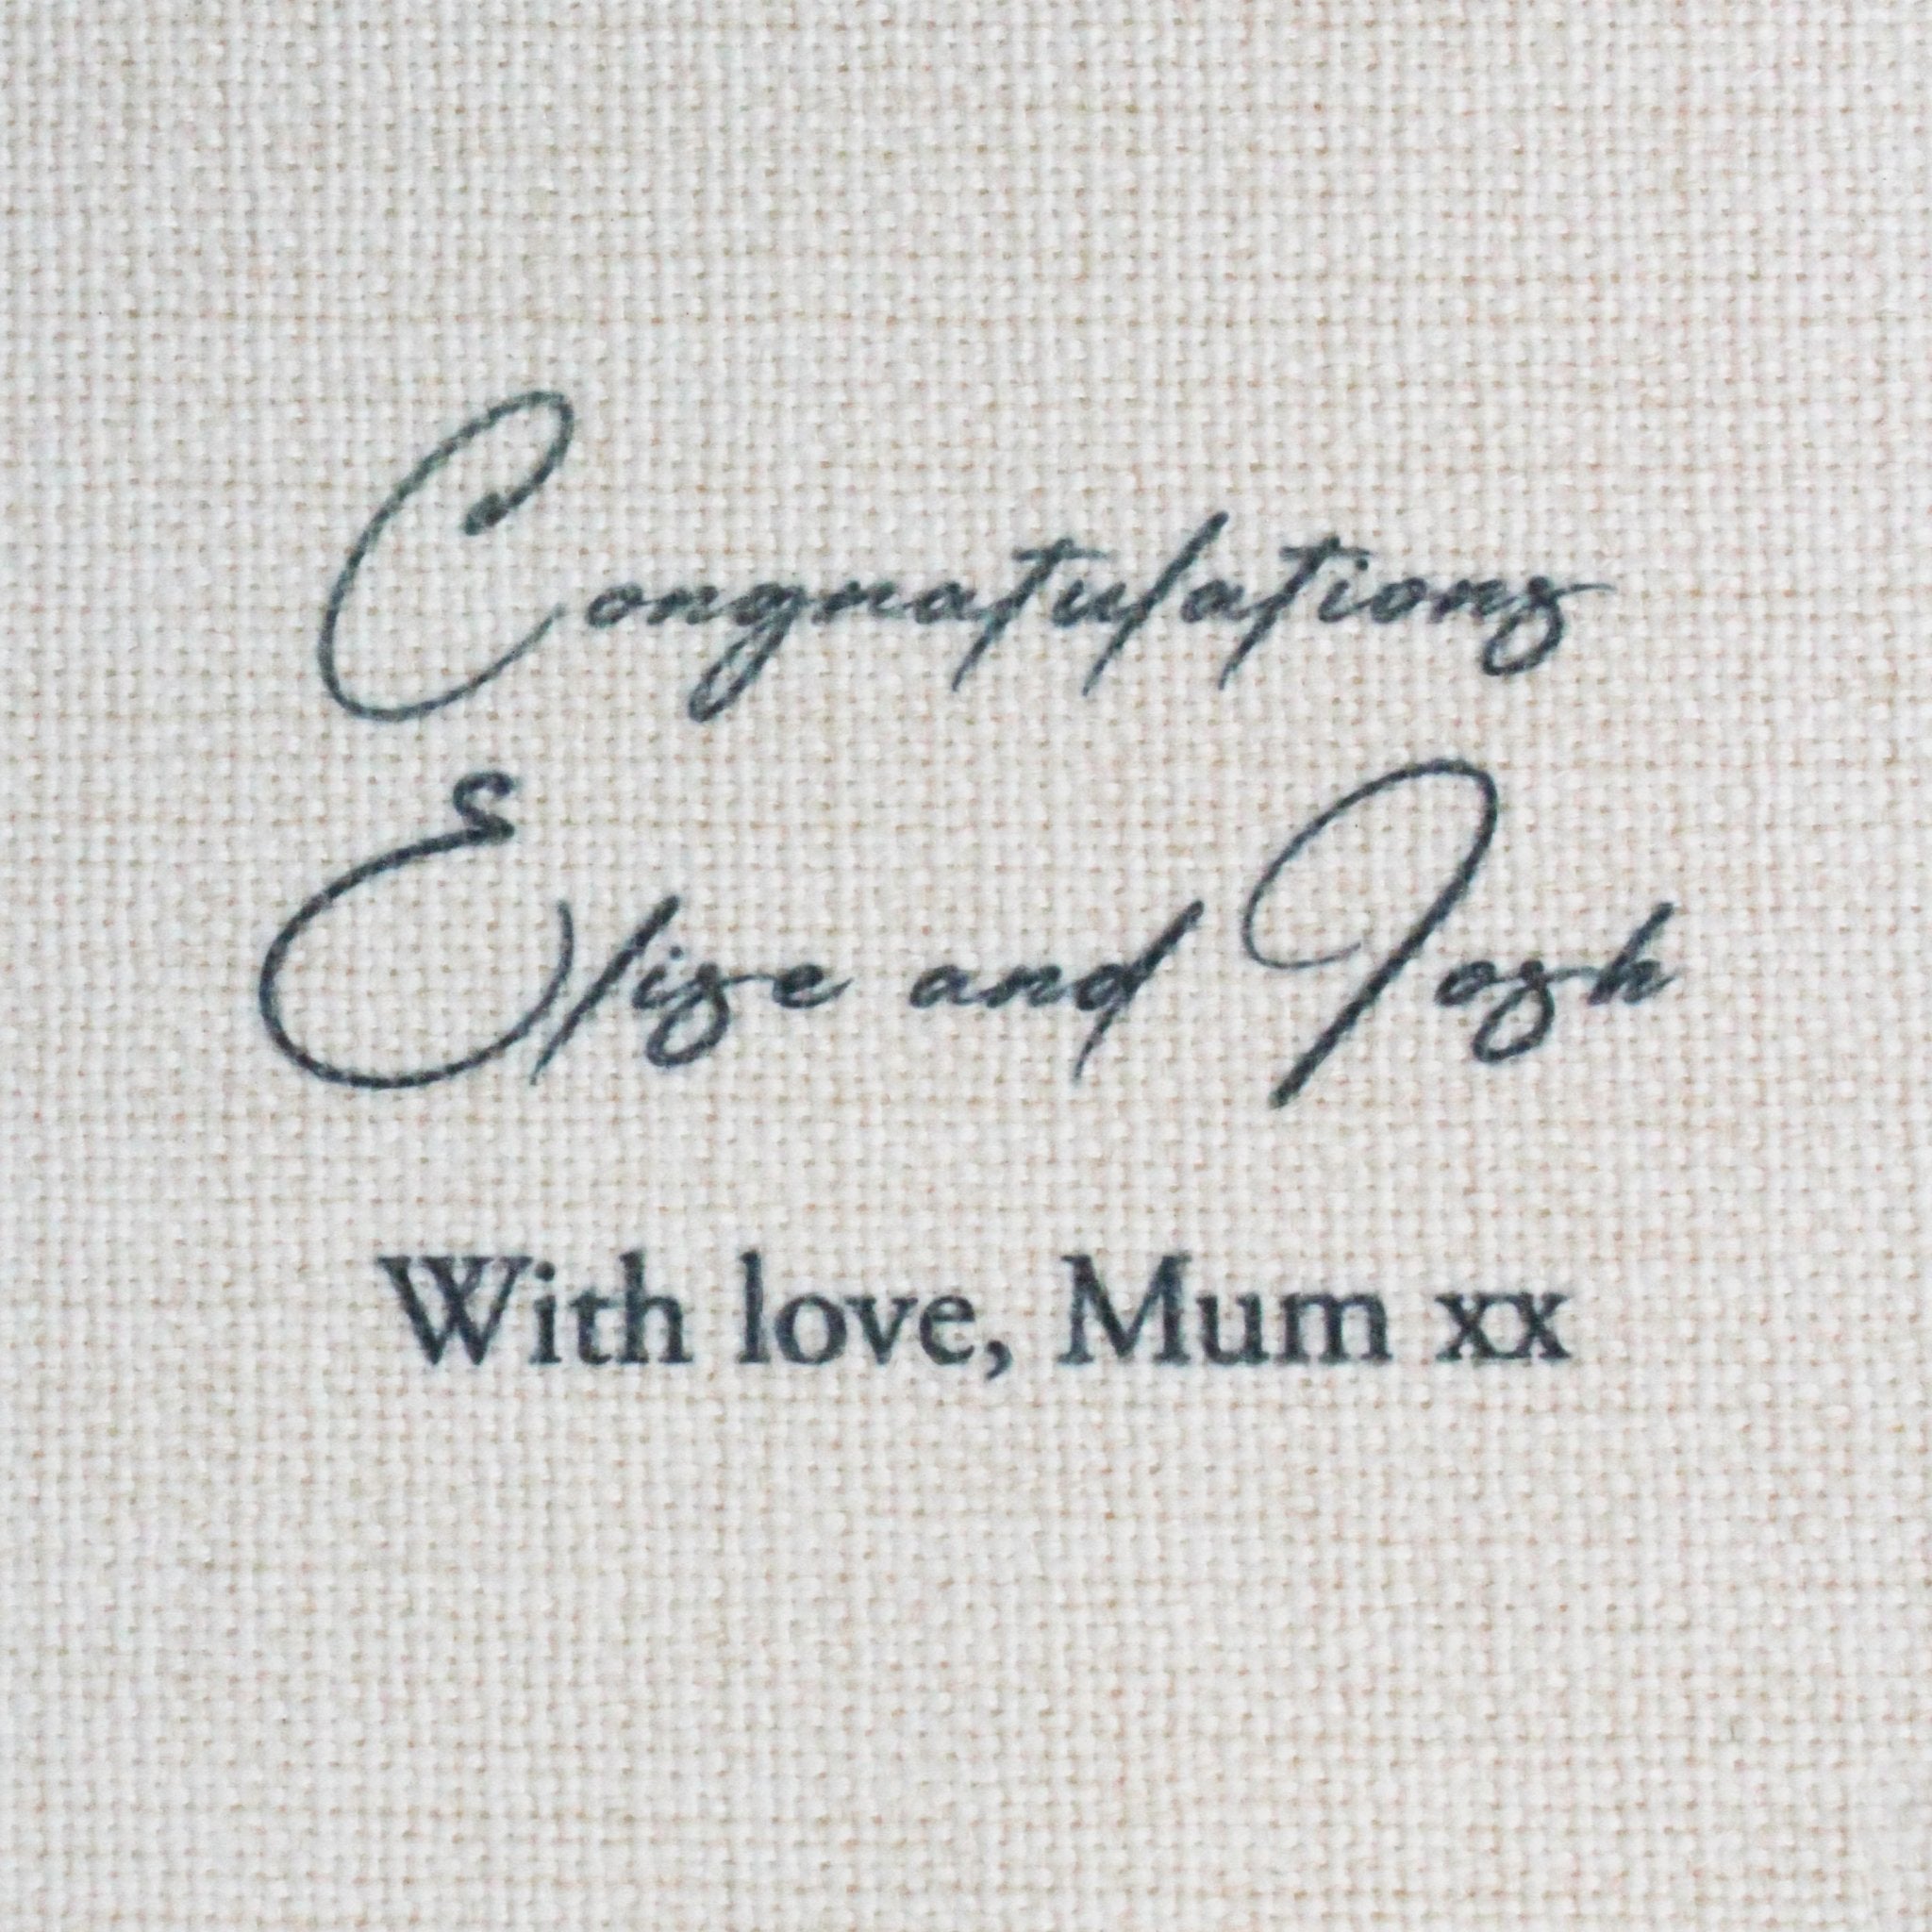 Congratulations
Elise and Josh
With love, Mum xx